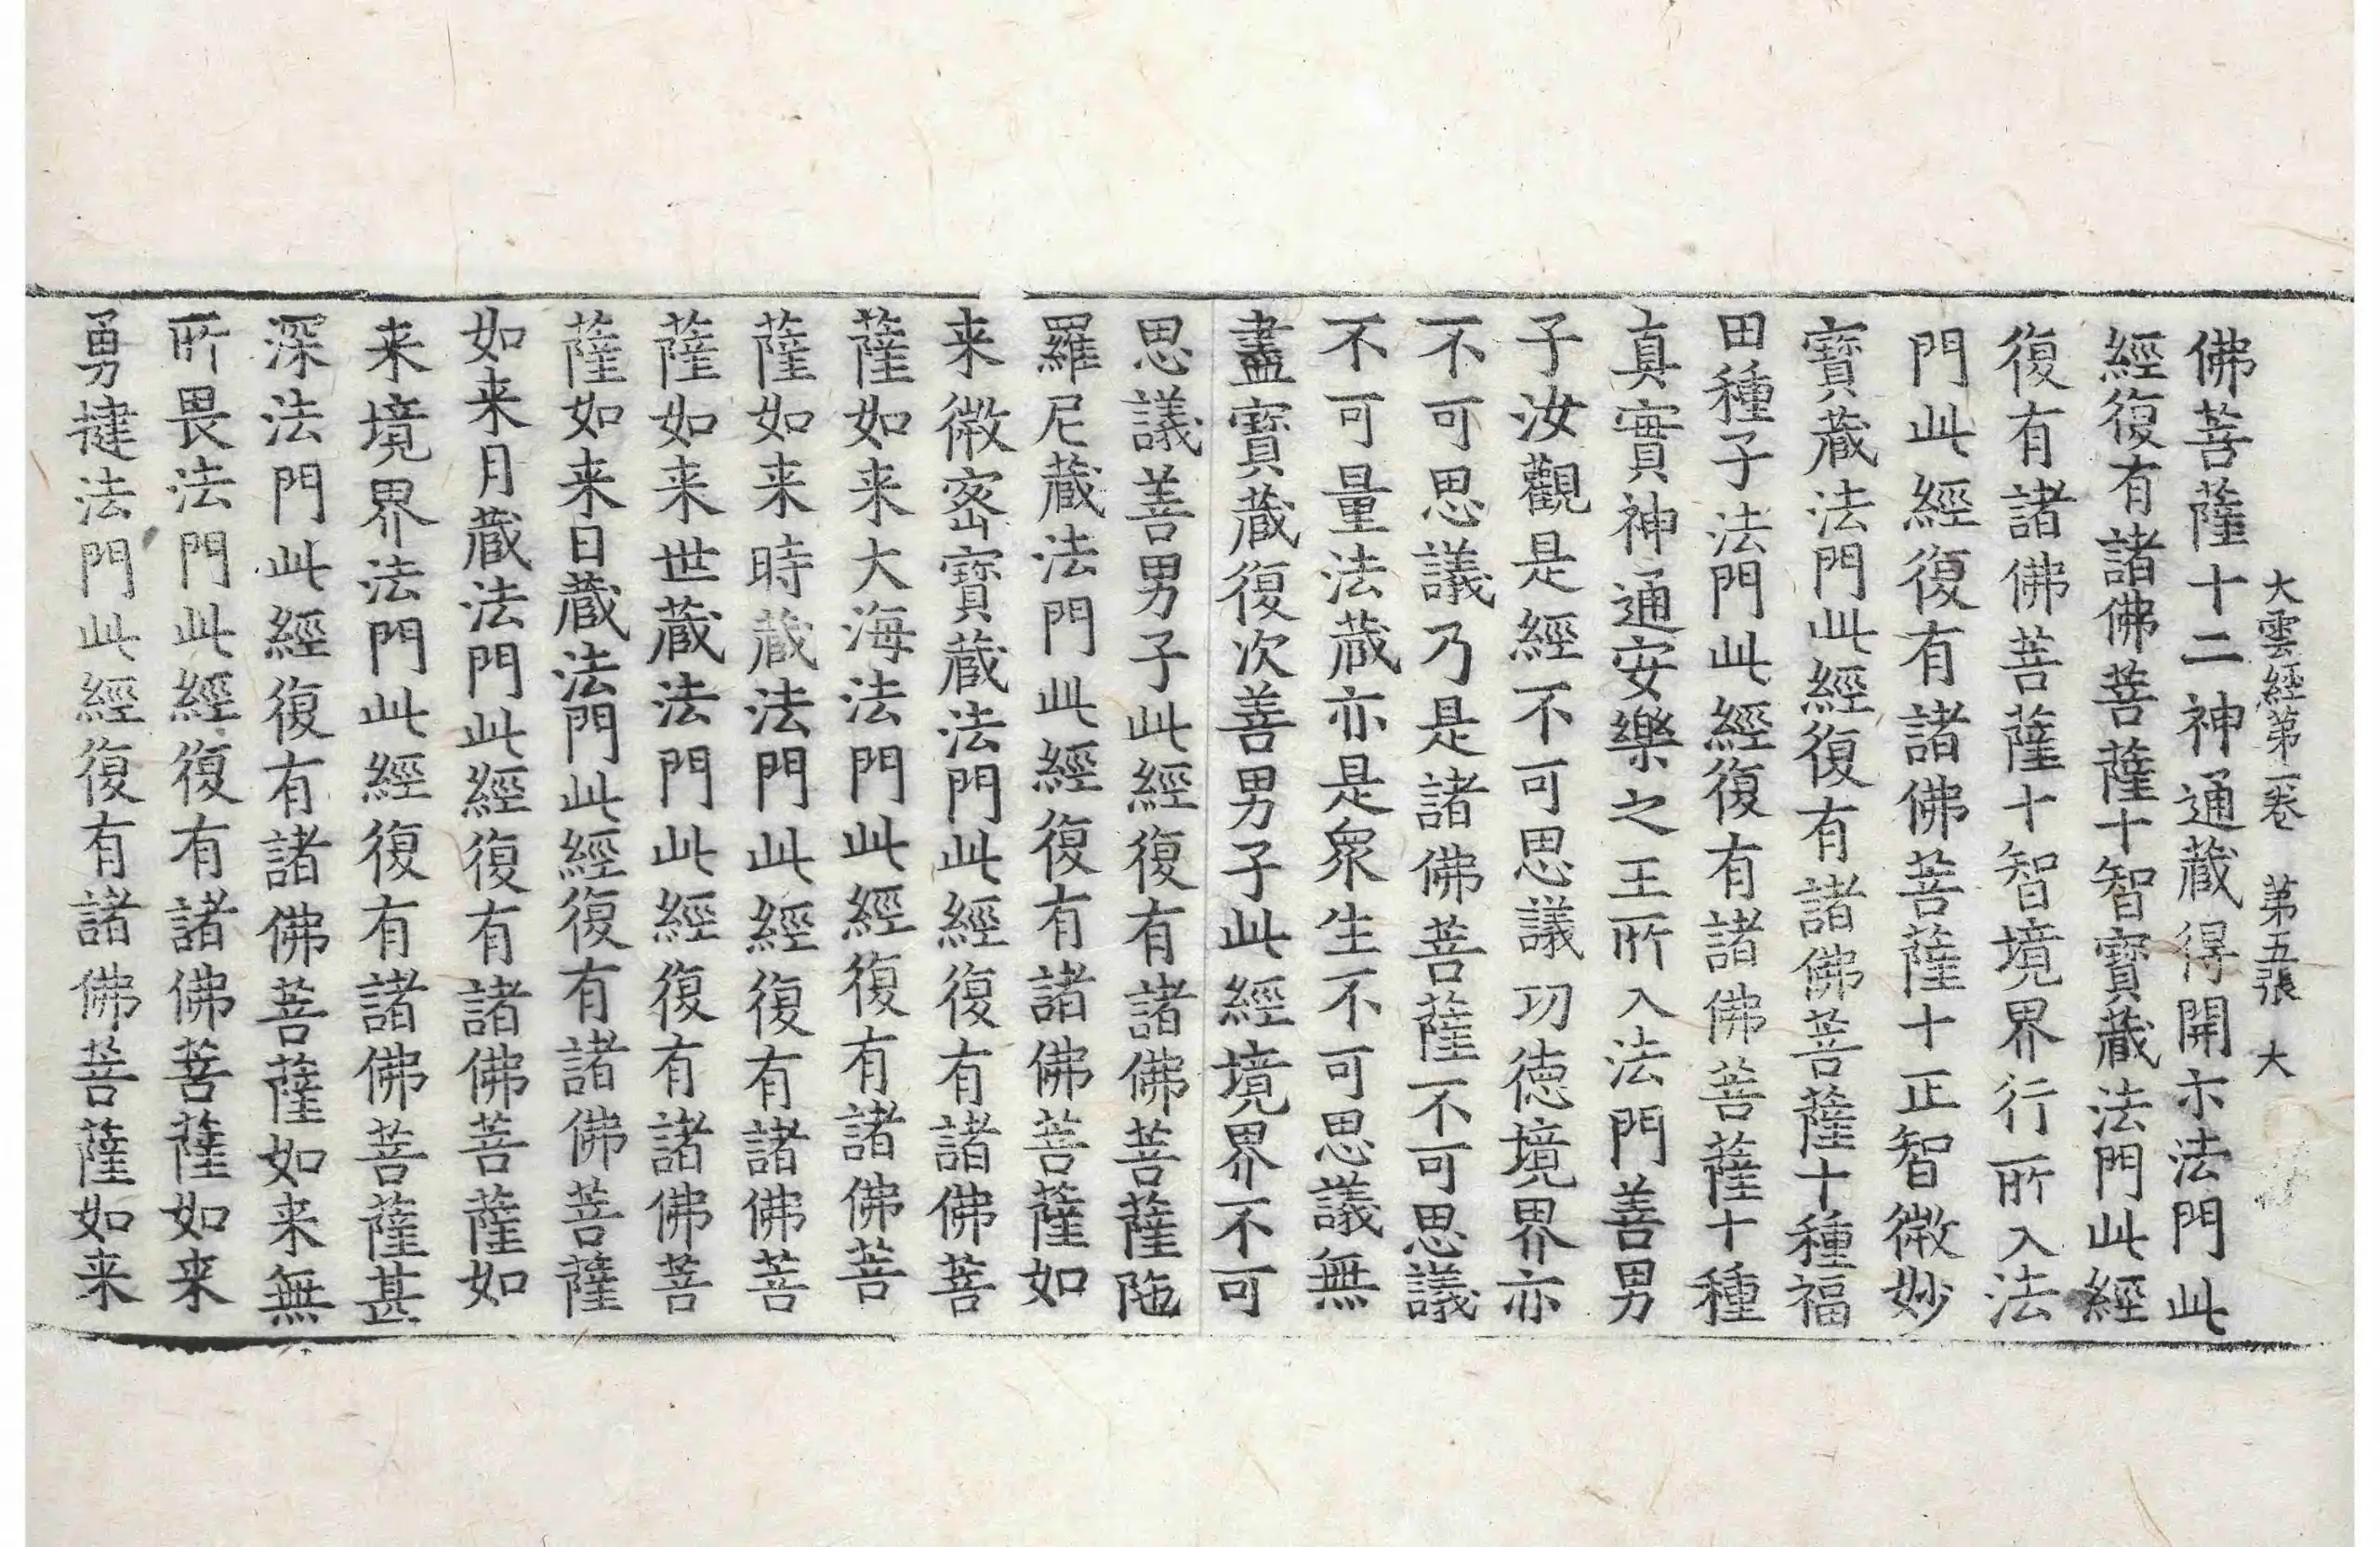 大雲經第一卷 第五張 大
佛菩薩十二神通蔵得開示法門此
經復有諸佛菩薩十智寶蔵法門此經
復有諸佛菩薩十智境界行所入法
門此經復有諸佛菩薩十正智微妙
寶蔵法門此經復有諸佛菩薩十種福
田種子法門此經復有諸佛菩薩十種
真實神通安樂之王所入法門善男
子汝觀是經不可思議功德境界亦
不可思議乃是諸佛菩薩不可思議
不可量法蔵亦是衆生不可思議無
盡寶蔵復次善男子此經境界不可
思議善男子此經復有諸佛菩薩陁
羅尼蔵法門此經復有諸佛菩薩如
来微宻寶蔵法門此經復有諸佛菩
薩如来大海法門此經復有諸佛菩
薩如来時蔵法門此經復有諸佛菩
薩如来世蔵法門此經復有諸佛菩
薩如来日蔵法門此經復有諸佛菩薩
如来月蔵法門此經復有諸佛菩薩如
来境界法門此經復有諸佛菩薩甚
深法門此經復有諸佛菩薩如来無
所畏法門此經復有諸佛菩薩如来
勇揵法門此經復有諸佛菩薩如来